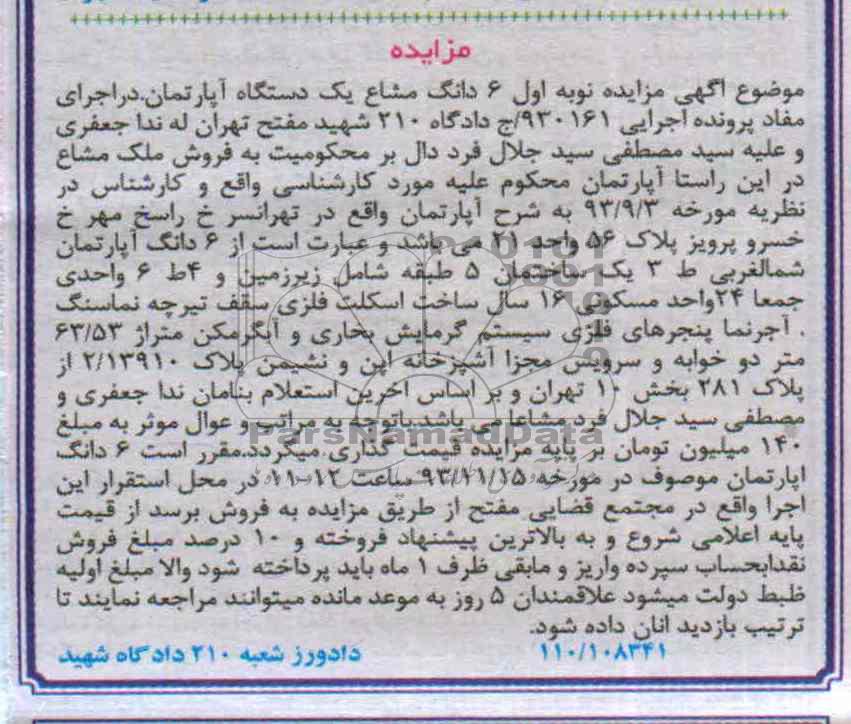 مزایده
موضوع اگهی مزایده نوبه اول ۶ دانگ مشاع یک دستگاه آپارتمان.دراجرای
مفاد پرونده اجرایی ۹۳۰۱۶۱/ج دادگاه ۲۱۰ شهید مفتح تهران له ندا جعفری
و علیه سید مصطفی سید جلال فرد دال بر محکومیت به فروش ملک مشاع
در این راستا آپارتمان محکوم علیه مورد کارشناسی واقع و کارشناس در
نظریه مورخه ۹۳/۹/۳ به شرح آپارتمان واقع در تهرانسر خ راسخ مهر خ
خسرو پرویز پلاک ۵۶ واحد ۲۱ می باشد و عبارت است از ۶ دانگ آپارتمان
شمالغربی ط ۳ یک ساختمان ۵ طبقه شامل زیرزمین و ۴ط ۶ واحدی
جمعا ۲۴واحد مسکونی ۱۶ سال ساخت اسکلت فلزی سقف تیرچه نماسنگ
. آجرنما پنجرهای فلزی سیستم گرمایش بخاری و آبگرمکن متراژ ۶۳/۵۳
متر دو خوابه و سرویس مجزا آشپزخانه اپن و نشیمن پلاک ۲/۱۳۹۱۰ از
پلاک ۲۸۱ بخش ۱۰ تهران و بر اساس اخرین استعلام بنامان ندا جعفری و
مصطفی سید جلال فرد مشاعا می باشد.باتوجه به مراتب و عوال موثر به مبلغ
۱۴۰ میلیون تومان بر پایه مزایده قیمت گذاری میگردد.مقرر است ۶ دانگ
اپارتمان موصوف در مورخه ۹۳/۱۱/۱۵ ساعت ۱۲-۱۱ در محل استقرار این
اجرا واقع در مجتمع قضایی مفتح از طریق مزایده به فروش برسد از قیمت
پایه اعلامی شروع و به بالاترین پیشنهاد فروخته و ۱۰ درصد مبلغ فروش
نقدابحساب سپرده واریز و مابقی ظرف ۱ ماه باید پرداخته شود والا مبلغ اولیه
ظبط دولت میشود علاقمندان ۵ روز به موعد مانده میتوانند مراجعه نمایند تا
ترتیب بازدید انان داده شود.
۱۱۰/۱۰۸۳۴۱ دادورز شعبه ۲۱۰ دادگاه شهید
ParsNamadData